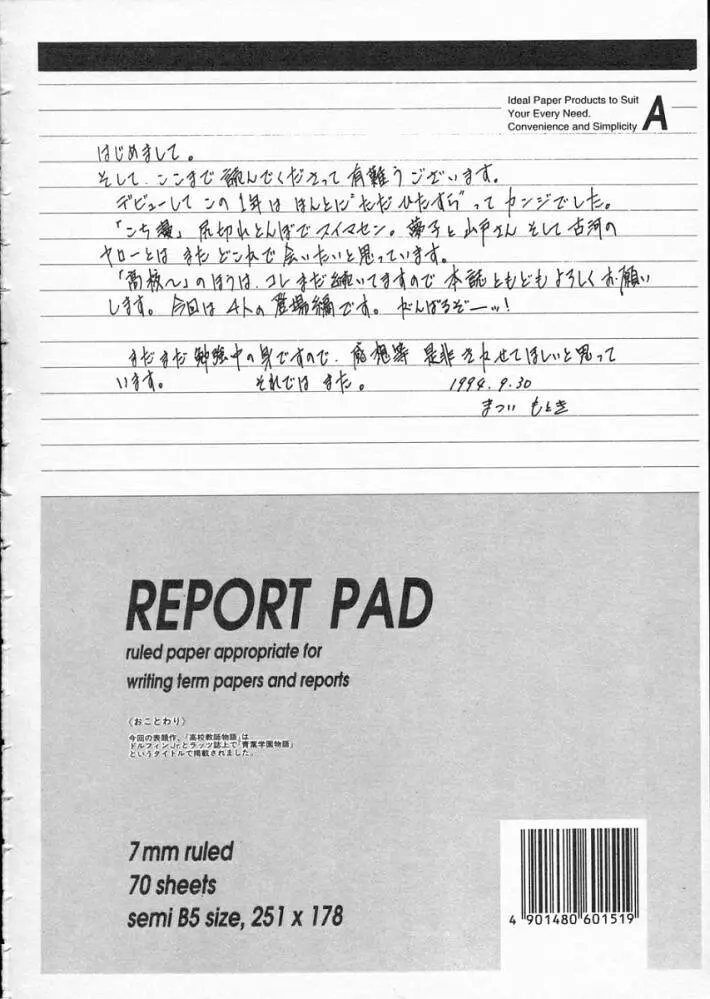 Ideal Paper Products to Suit
Your Every Need.
Convenience and Simplicity A
はじめまして。
そして、ここまで読んでくださって有難うございます。
デビューしてこの1年はほんとに"ただひたすら"ってカンジでした。
「こち」尻切れとんぼでスイマセン。子と山戸さんそして古河の
ヤローとはまたどこかで会いたいと思っています。
「高校〜」のほうは、コレまだ続いてますので本誌ともどもよろしくお願い
します。今回は4人の登場編です。がんばるぞーッ!
まだまだ勉強中の身ですので、感想等是非きかせてほしいと思って
います。 それではまた。 1994.9.30
まつい もとき
REPORT PAD
ruled paper appropriate for
writing term papers and reports
《おことわり》
今回の表題作、「高校教師物語」は
ドルフィンJr.とラッツ誌上で「青葉学園物語」
というタイトルで掲載されました。
7mm ruled
70 sheets
semi B5 size, 251 x 178
4 901480 601519